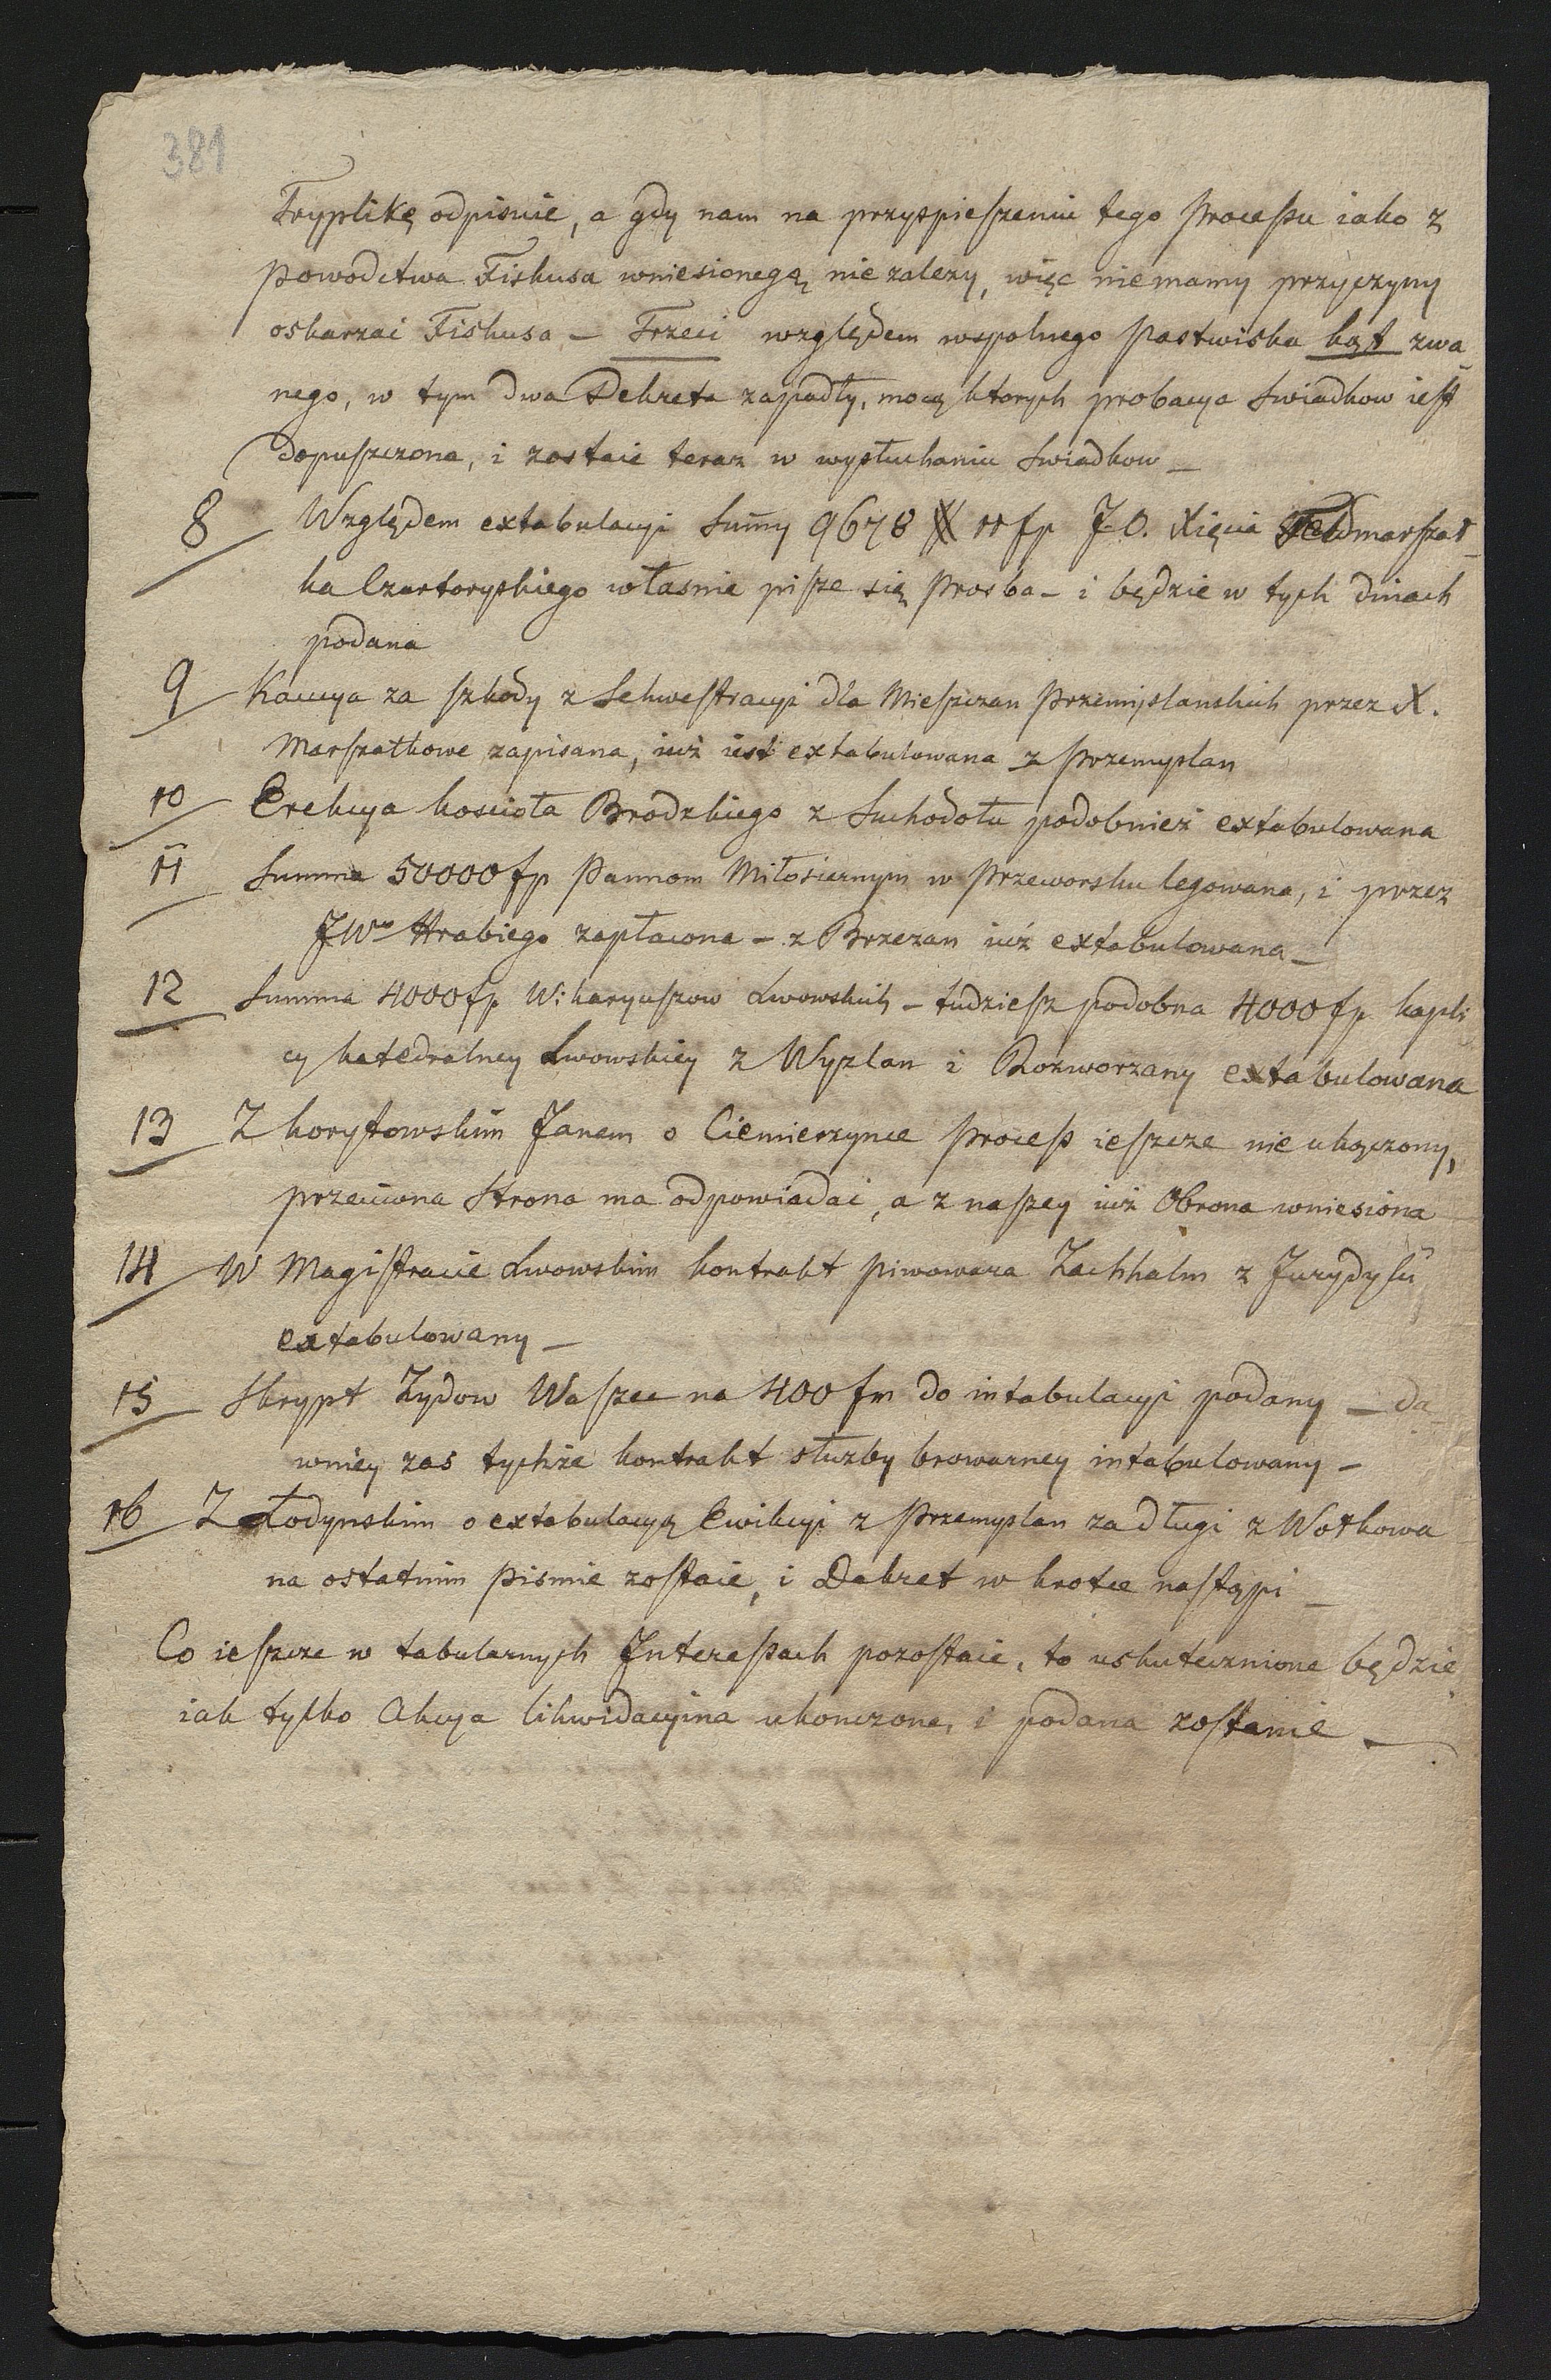 381
Tryplikę odpisuie, a gdy nam na przyspieszeniu tego Processu iako z
powodctwa Fiskusa wniesionegą nie zalezy, więc nie mamy przyczyny
oskarzać Fiskusa – Trzeci względem wspolnego Pastwiska kąt zwa¬
nego, w tym dwa Dekreta zapadły, mocą ktorych probacya Swiadkow iest
dopuszczona, i zostaie teraz w wysłuchaniu Swiadkow –
8 Względem extabulacyi Sum̄y 9678 # 11 fp J.O. Xięcia Feldmarszał¬
ka Czartoryskiego własnie pisze się Prosba – i będzie w tych dniach
podana
9 Kaucya za szkody z Sekwestracyi dla Mieszczan Przemyslanskich przez X.
Marszałkowe zapisana, iuż iest extabulowana z Przemyslan
10 Erekcya kościoła Brodzkiego z Suchodołu podobnież extabulowana
11 Summa 50000 fp Pannom Miłosiernym w Przeworsku legowana, i przez
JWo Hrabiego zapłacona – z Brzezan iuż extabulowana –
12 Summa 4000 fp Wikaryuszow Lwowskich – tudziesz podobna 4000 fp kapli
cy katedralney Lwowskiey z Wyzlan i Rozworzany extabulowana
13 Z Korytowskim Janem o Ciemierzynce Process ieszcze nie ukączony,
przeciwna Strona ma odpowiadać, a z naszey iuż Obrona wniesiona
14 W Magistracie Lwowskim kontrakt piwowara Zachhalm z Jurydyki
extabulowany –
15 Skrypt Zydow Waszee na 400 fm do intabulacyi podany – da¬
wniey zas tychże kontrakt słuzby browarney intabulowany –
16 Z Łodynskim o extabulacyą Ewikcyi z Przemyslan za długi z Wołkowa
na ostatnim Pismie zostaie, i Dekret w krotce nastąpi –
Co ieszcze w tabularnych Interessach pozostaie, to uskutecznione będzie
iak tylko Akcya likwidacyina ukonczona, i podana zostanie –